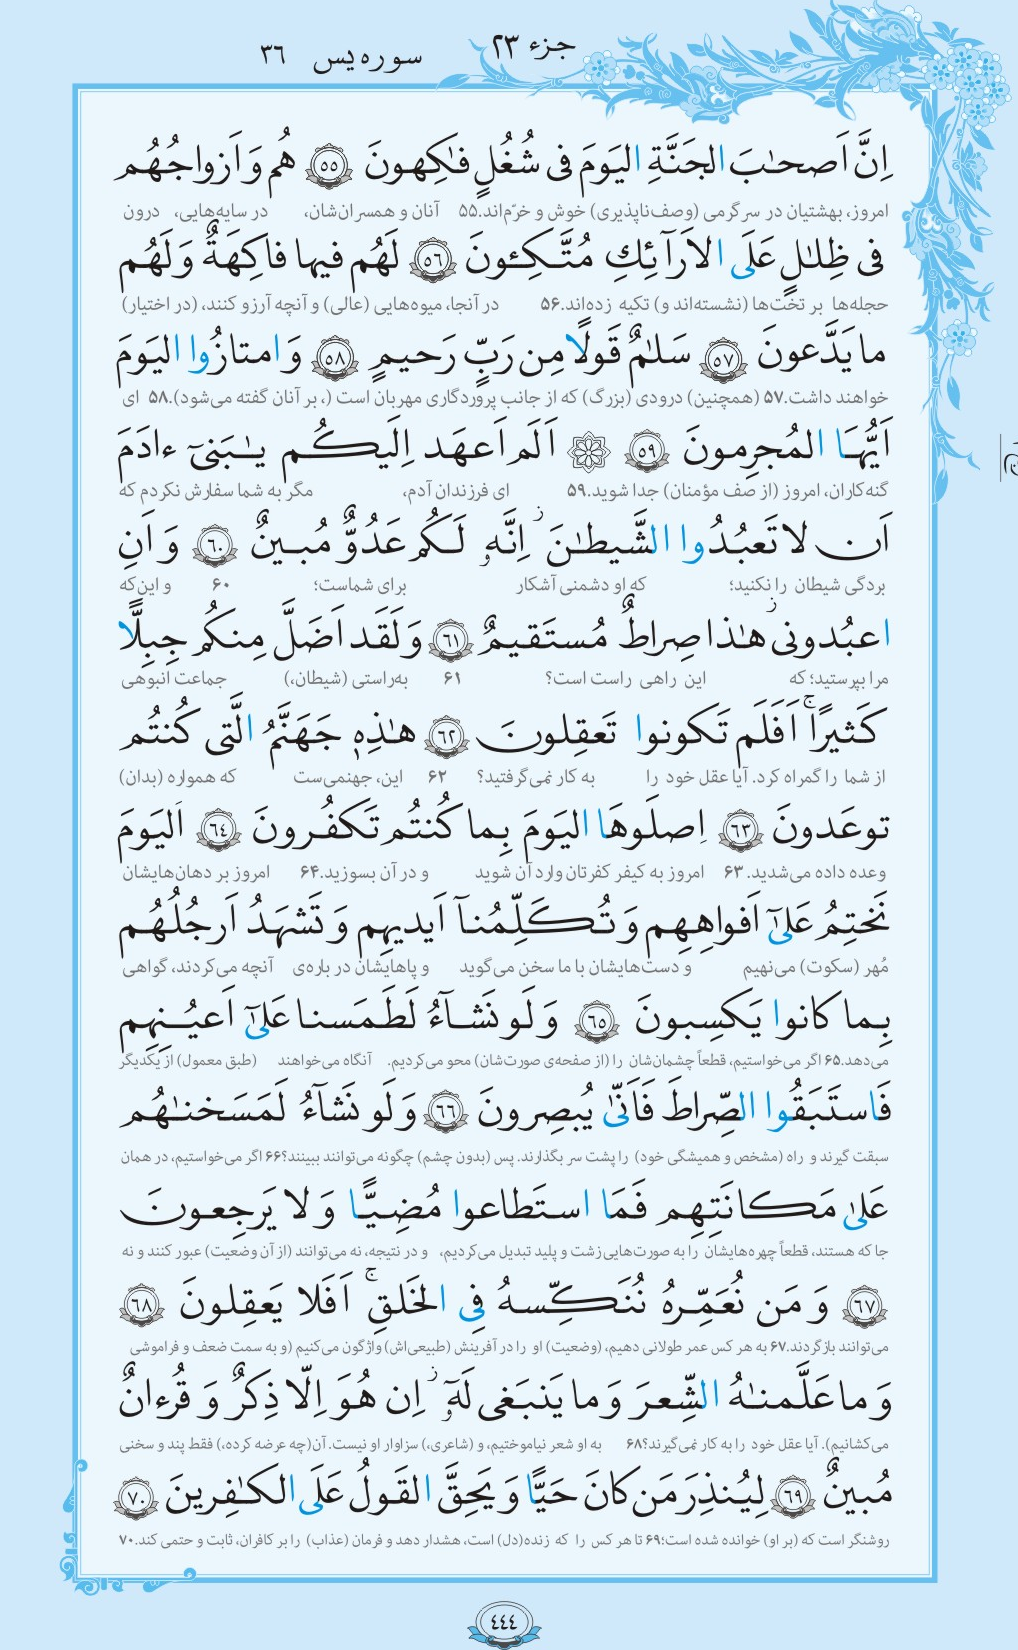 جزء ۲۳
سوره یس ۳۶
اِنَّ اَصحٰبَ الجَنَّةِ اليَومَ فى شُغُلٍ فٰكِهونَ ﴿٥٥﴾ هُم وَ اَزواجُهُم
امروز، بهشتیان در سرگرمی (وصف‌ناپذیری) خوش و خرّم‌اند.۵۵ آنان و همسران‌شان، در سایه‌هایی، درون
فى ظِلٰلٍ عَلَى الاَرآئِكِ مُتَّكِـٔونَ ﴿٥٦﴾ لَهُم فيها فاكِهَةٌ وَ لَهُم
حجله‌ها بر تخت‌ها (نشسته‌اند و) تکیه زده‌اند.۵۶ در آنجا، میوه‌هایی (عالی) و آنچه آرزو کنند، (در اختیار)
ما يَدَّعونَ ﴿٥٧﴾ سَلٰمٌ قَولًا مِن رَبٍّ رَحيمٍ ﴿٥٨﴾ وَ امتازُوا اليَومَ
خواهند داشت.۵۷ (همچنین) درودی (بزرگ) که از جانب پروردگاری مهربان است (، بر آنان گفته می‌شود).۵۸ ای
اَيُّهَا المُجرِمونَ ﴿٥٩﴾ ۞ اَلَم اَعهَد اِلَيكُم يٰبَنىٓ ءادَمَ
گنه‌کاران، امروز (از صف مؤمنان) جدا شوید.۵۹ ای فرزندان آدم، مگر به شما سفارش نکردم که
اَن لا تَعبُدُوا الشَّيطٰنَ ۖ اِنَّهۥ لَكُم عَدُوٌّ مُبينٌ ﴿٦٠﴾ وَ اَنِ
بردگی شیطان را نکنید؛ که او دشمنی آشکار برای شماست؛ ۶۰ و این‌که
اعبُدونى ۚ هٰذا صِراطٌ مُستَقيمٌ ﴿٦١﴾ وَ لَقَد اَضَلَّ مِنكُم جِبِلًّا
مرا بپرستید؛ که این راهی راست است؟ ۶۱ به‌راستی (شیطان،) جماعت انبوهی
كَثيرًا ۖ اَفَلَم تَكونوا تَعقِلونَ ﴿٦٢﴾ هٰذِهٖ جَهَنَّمُ الَّتى كُنتُم
از شما را گمراه کرد. آیا عقل خود را به کار نمی‌گرفتید؟ ۶۲ این، جهنمی‌ست که همواره (بدان)
توعَدونَ ﴿٦٣﴾ اِصلَوهَا اليَومَ بِما كُنتُم تَكفُرونَ ﴿٦٤﴾ اَليَومَ
وعده داده می‌شدید. ۶۳ امروز به کیفر کفرتان وارد آن شوید و در آن بسوزید.۶۴ امروز بر دهان‌هایشان
نَختِمُ عَلىٰٓ اَفواهِهِم وَ تُكَلِّمُنآ اَيديهِم وَ تَشهَدُ اَرجُلُهُم
مُهر (سکوت) می‌نهیم و دست‌هایشان با ما سخن می‌گوید و پاهایشان در باره‌ی آنچه می‌کردند، گواهی
بِما كانوا يَكسِبونَ ﴿٦٥﴾ وَ لَو نَشآءُ لَطَمَسنا عَلىٰٓ اَعيُنِهِم
می‌دهد.۶۵ اگر می‌خواستیم، قطعاً چشمان‌شان را (از صفحه‌ی صورت‌شان) محو می‌کردیم. آنگاه می‌خواهند (طبق معمول) از یکدیگر
فَاستَبَقُوا الصِّراطَ فَاَنّىٰ يُبصِرونَ ﴿٦٦﴾ وَ لَو نَشآءُ لَمَسَخنٰهُم
سبقت گیرند و راه (مشخص و همیشگی خود) را پشت سر بگذارند. پس (بدون چشم) چگونه می‌توانند ببینند؟۶۶ اگر می‌خواستیم، در همان
عَلىٰ مَكانَتِهِم فَمَا استَطاعوا مُضِيًّا وَ لا يَرجِعونَ
جا که هستند، قطعاً چهره‌هایشان را به صورت‌هایی زشت و پلید تبدیل می‌کردیم، و در نتیجه، نه می‌توانند (از آن وضعیت) عبور کنند و نه
﴿٦٧﴾ وَ مَن نُعَمِّرهُ نُنَكِّسهُ فِى الخَلقِ ۚ اَفَلا يَعقِلونَ ﴿٦٨﴾
می‌توانند بازگردند.۶۷ به هر کس عمر طولانی دهیم، (وضعیت) او را در آفرینش (طبیعی‌اش) واژگون می‌کنیم (و به سمت ضعف و فراموشی
وَ ما عَلَّمنٰهُ الشِّعرَ وَ ما يَنبَغى لَهۥٓ ۚ اِن هُوَ اِلّا ذِكرٌ وَ قُرءانٌ
می‌کشانیم). آیا عقل خود را به کار نمی‌گیرند؟۶۸ به او شعر نیاموختیم، و (شاعری،) سزاوار او نیست. آن(چه عرضه کرده،) فقط پند و سخنی
مُبينٌ ﴿٦٩﴾ لِيُنذِرَ مَن كانَ حَيًّا وَ يَحِقَّ القَولُ عَلَى الكٰفِرينَ ﴿٧٠﴾
روشنگر است که (بر او) خوانده شده است؛۶۹ تا هر کس را که زنده(دل) است، هشدار دهد و فرمان (عذاب) را بر کافران، ثابت و حتمی کند.۷۰
٤٤٤